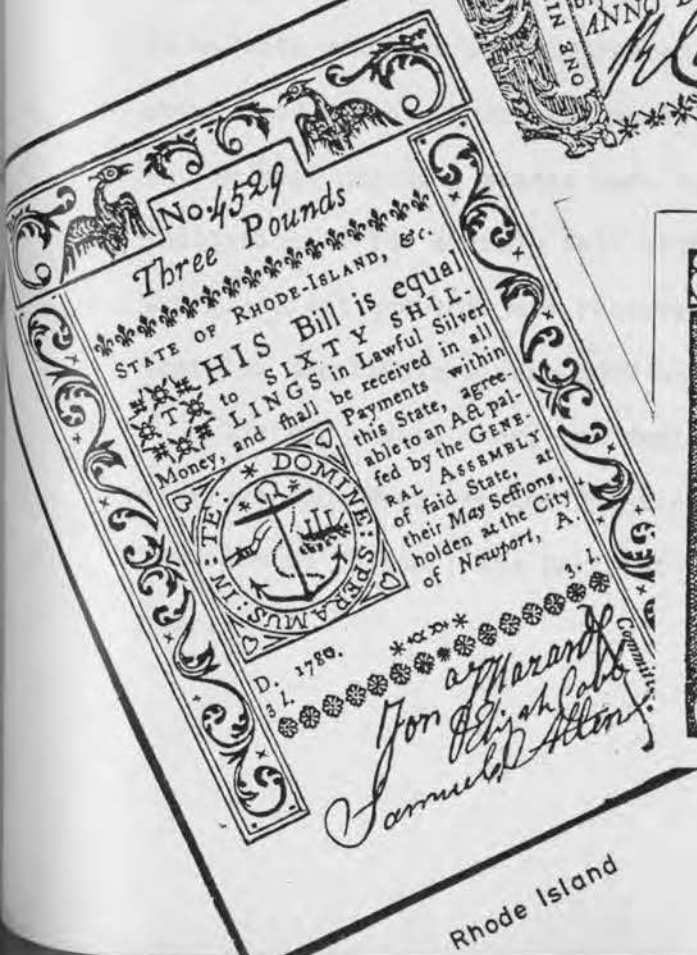 ONE NI
ANNO
No. 4529
Three Pounds
STATE OF RHODE-ISLAND, &c.
THIS Bill is equal
to SIXTY SHIL-
LINGS in Lawful Silver
Money, and ſhall be received in all
Payments within
this State, agree-
able to an Act paſ-
ſed by the GENE-
RAL ASSEMBLY
of ſaid State, at
their May Seſſions,
holden at the City
of Newport, A.
DOMINE: SPERAMUS: IN: TE:
D. 1786.
3 l.
3 l.
Jon J Hazard
Elijah Cobb
Samuel Allen
Rhode Island